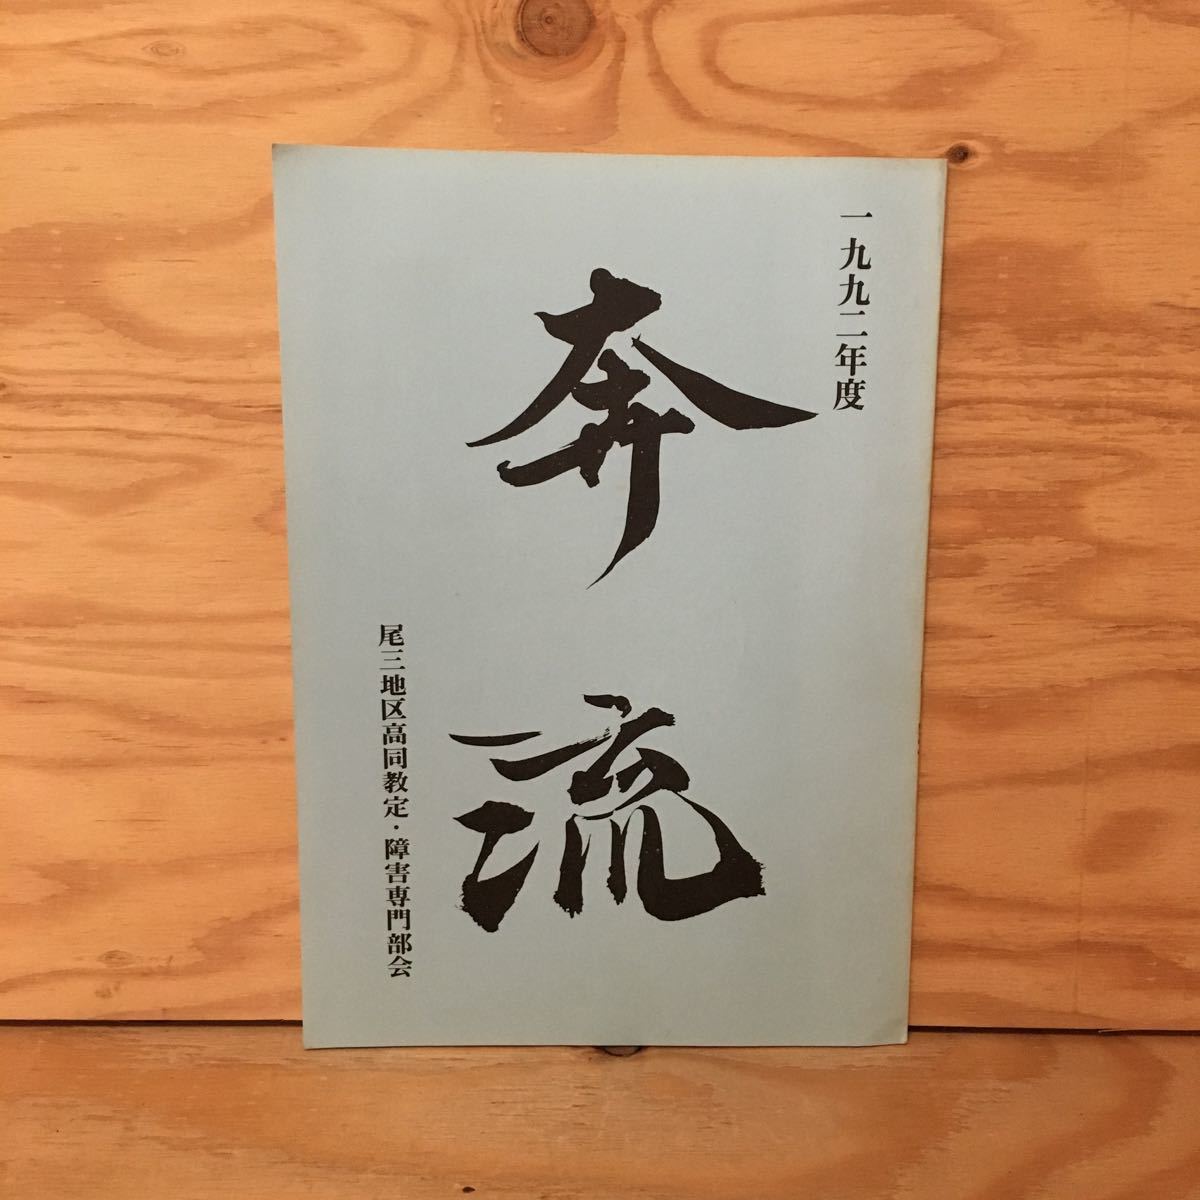 一九九二年度
奔流
尾三地区高同教定・障害専門部会